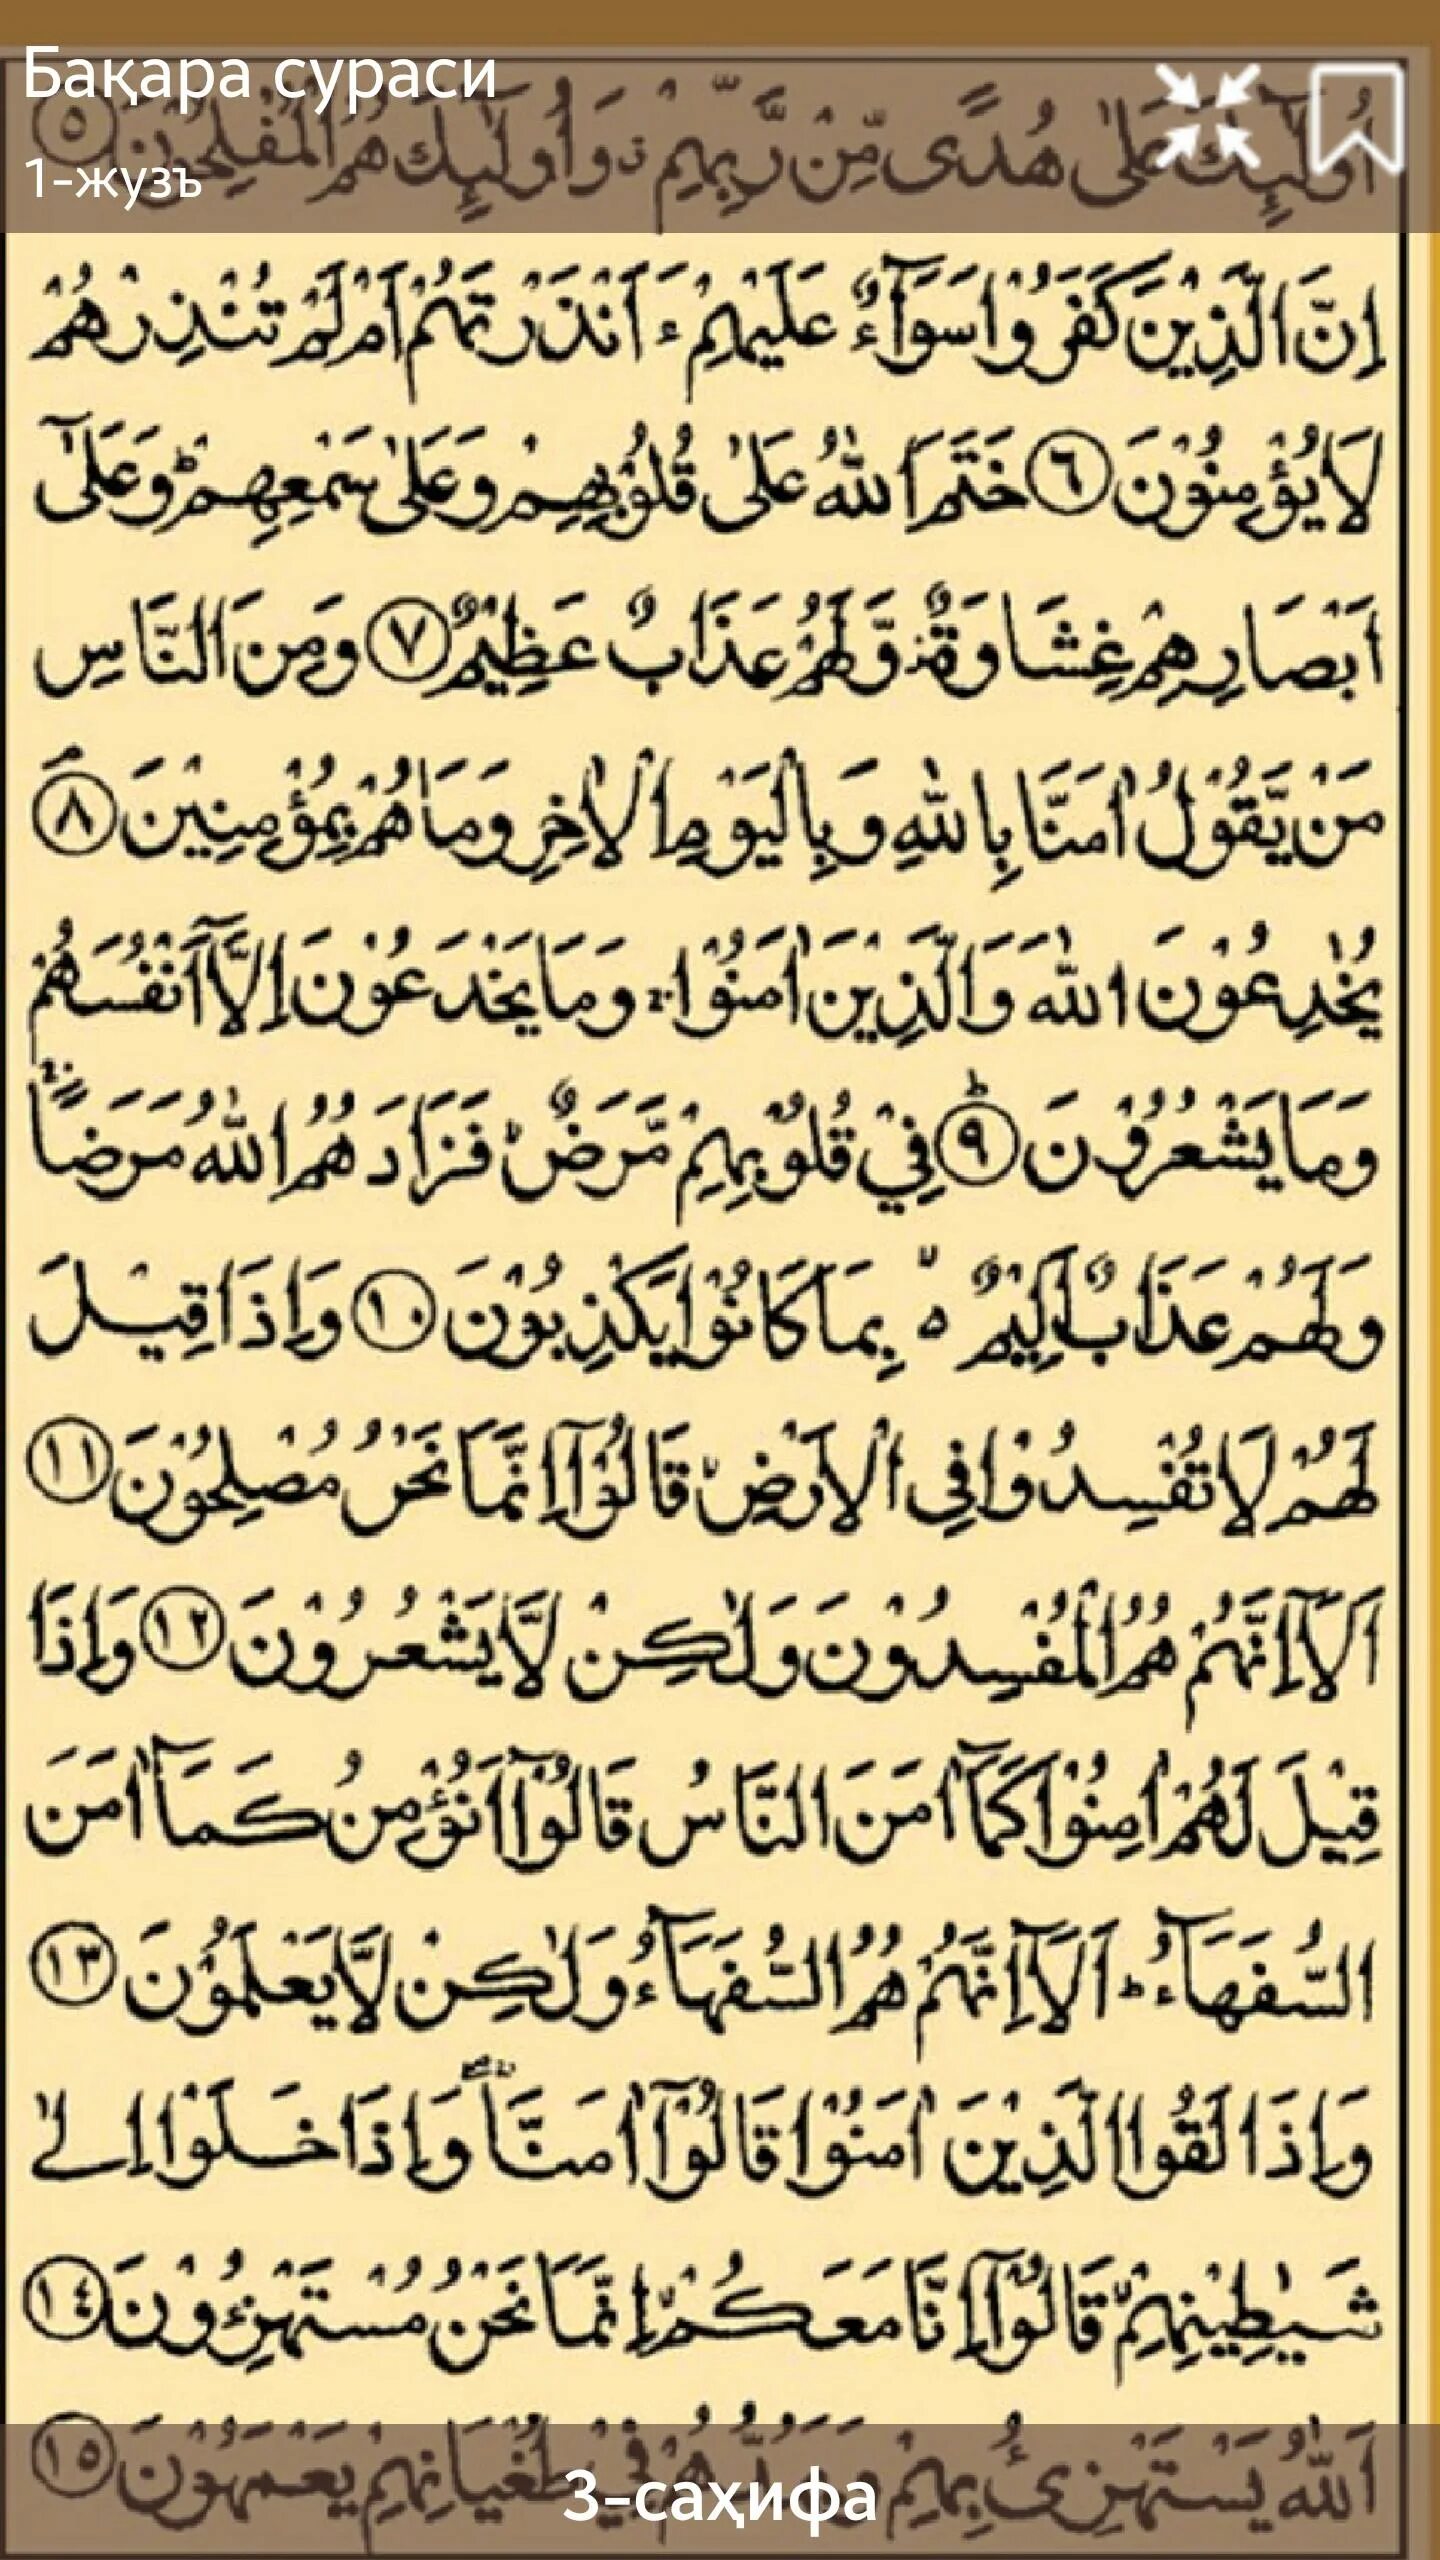 Бақара сураси
1-жузъ
اُولٰٓئِكَ عَلٰى هُدًى مِّنْ رَّبِّهِمْ ۙ وَ اُولٰٓئِكَ هُمُ الْمُفْلِحُوْنَ ﴿٥﴾
اِنَّ الَّذِيْنَ كَفَرُوْا سَوَآءٌ عَلَيْهِمْ ءَاَنْذَرْتَهُمْ اَمْ لَمْ تُنْذِرْهُمْ
لَا يُؤْمِنُوْنَ ﴿٦﴾ خَتَمَ اللّٰهُ عَلٰى قُلُوْبِهِمْ وَعَلٰى سَمْعِهِمْ ؕ وَعَلٰٓى
اَبْصَارِهِمْ غِشَاوَةٌ ۫ وَّلَهُمْ عَذَابٌ عَظِيْمٌ ﴿٧﴾ وَمِنَ النَّاسِ
مَنْ يَّقُوْلُ اٰمَنَّا بِاللّٰهِ وَبِالْيَوْمِ الْاٰخِرِ وَمَا هُمْ بِمُؤْمِنِيْنَ ۘ ﴿٨﴾
يُخٰدِعُوْنَ اللّٰهَ وَالَّذِيْنَ اٰمَنُوْا ۚ وَمَا يَخْدَعُوْنَ اِلَّآ اَنْفُسَهُمْ
وَمَا يَشْعُرُوْنَ ؕ ﴿٩﴾ فِيْ قُلُوْبِهِمْ مَّرَضٌ ۙ فَزَادَهُمُ اللّٰهُ مَرَضًا ۚ
وَلَهُمْ عَذَابٌ اَلِيْمٌ ۢ ۙ بِمَا كَانُوْا يَكْذِبُوْنَ ﴿١٠﴾ وَاِذَا قِيْلَ
لَهُمْ لَا تُفْسِدُوْا فِي الْاَرْضِ ۙ قَالُوْٓا اِنَّمَا نَحْنُ مُصْلِحُوْنَ ﴿١١﴾
اَلَآ اِنَّهُمْ هُمُ الْمُفْسِدُوْنَ وَلٰكِنْ لَّا يَشْعُرُوْنَ ﴿١٢﴾ وَاِذَا
قِيْلَ لَهُمْ اٰمِنُوْا كَمَآ اٰمَنَ النَّاسُ قَالُوْٓا اَنُؤْمِنُ كَمَآ اٰمَنَ
السُّفَهَآءُ ؕ اَلَآ اِنَّهُمْ هُمُ السُّفَهَآءُ وَلٰكِنْ لَّا يَعْلَمُوْنَ ﴿١٣﴾
وَاِذَا لَقُوا الَّذِيْنَ اٰمَنُوْا قَالُوْٓا اٰمَنَّا ۖۚ وَاِذَا خَلَوْا اِلٰى
شَيٰطِيْنِهِمْ ۙ قَالُوْٓا اِنَّا مَعَكُمْ ۙ اِنَّمَا نَحْنُ مُسْتَهْزِءُوْنَ ﴿١٤﴾
اَللّٰهُ يَسْتَهْزِئُ بِهِمْ وَيَمُدُّهُمْ فِيْ طُغْيَانِهِمْ يَعْمَهُوْنَ ﴿١٥﴾
3-саҳифа